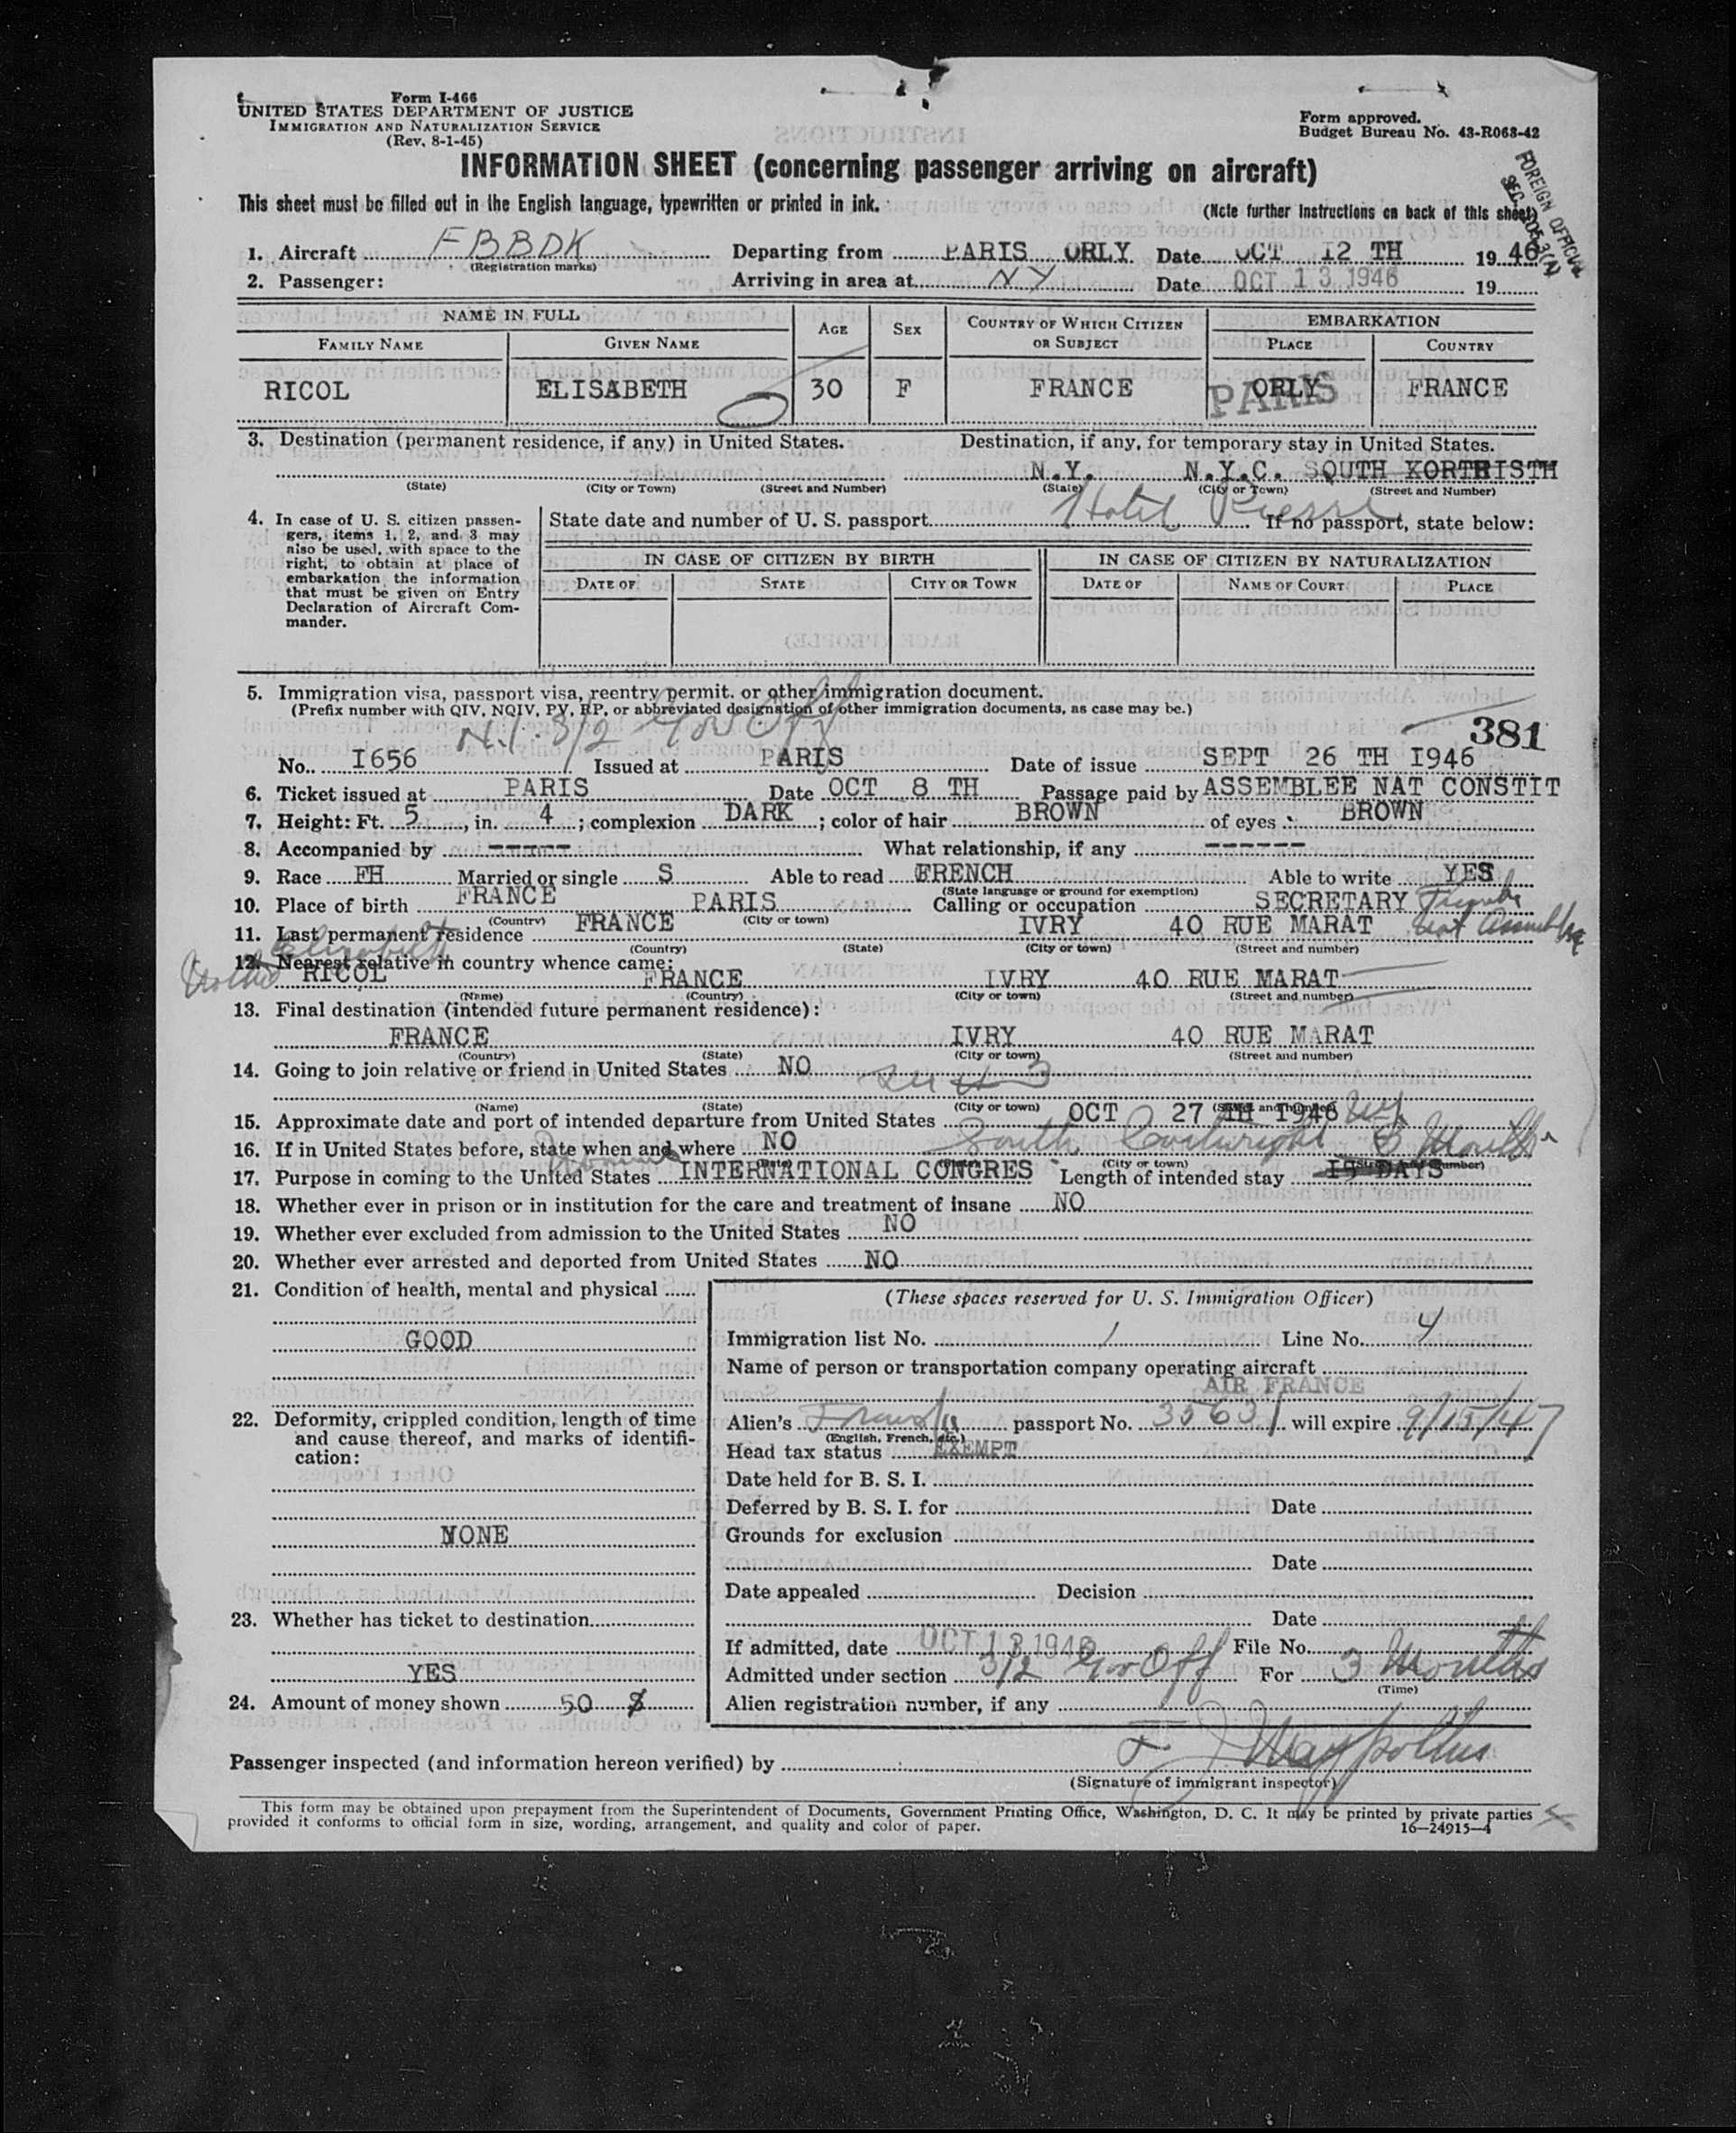 Form I-466
UNITED STATES DEPARTMENT OF JUSTICE
IMMIGRATION AND NATURALIZATION SERVICE
(Rev. 8-1-45)
Form approved.
Budget Bureau No. 43-R063-42
INFORMATION SHEET (concerning passenger arriving on aircraft)
This sheet must be filled out in the English language, typewritten or printed in ink.
(Note further instructions on back of this sheet)
FOREIGN OFFICIAL
1. Aircraft FBBDK Departing from PARIS ORLY Date OCT I2 TH 19 46
(Registration marks)
2. Passenger: Arriving in area at NY Date OCT 13 1946 19
NAME IN FULL AGE SEX COUNTRY OF WHICH CITIZEN OR SUBJECT EMBARKATION
FAMILY NAME GIVEN NAME PLACE COUNTRY
RICOL ELISABETH 30 F FRANCE ORLY PARIS FRANCE
3. Destination (permanent residence, if any) in United States. Destination, if any, for temporary stay in United States.
N.Y. N.Y.C. SOUTH
(State) (City or Town) (Street and Number) (State) (City or Town) (Street and Number)
Hotel
4. In case of U. S. citizen passengers, items 1, 2, and 3 may also be used, with space to the right, to obtain at place of embarkation the information that must be given on Entry Declaration of Aircraft Commander.
State date and number of U. S. passport If no passport, state below:
IN CASE OF CITIZEN BY BIRTH IN CASE OF CITIZEN BY NATURALIZATION
DATE OF STATE CITY OR TOWN DATE OF NAME OF COURT PLACE
5. Immigration visa, passport visa, reentry permit, or other immigration document.
(Prefix number with QIV, NQIV, PV, RP, or abbreviated designation of other immigration documents, as case may be.)
3/2 Gov Off
381
No. I656 Issued at PARIS Date of issue SEPT 26 TH I946
6. Ticket issued at PARIS Date OCT 8 TH Passage paid by ASSEMBLEE NAT CONSTIT
7. Height: Ft. 5, in. 4; complexion DARK; color of hair BROWN of eyes BROWN
8. Accompanied by ----- What relationship, if any ------
9. Race FH Married or single S Able to read FRENCH Able to write YES
(State language or ground for exemption)
10. Place of birth FRANCE PARIS Calling or occupation SECRETARY
(Country) (City or town)
11. Last permanent residence FRANCE IVRY 40 RUE MARAT
(Country) (State) (City or town) (Street and number)
Elizabeth
12. Nearest relative in country whence came:
RICOL FRANCE IVRY 40 RUE MARAT
(Name) (Country) (City or town) (Street and number)
13. Final destination (intended future permanent residence):
FRANCE IVRY 40 RUE MARAT
(Country) (State) (City or town) (Street and number)
14. Going to join relative or friend in United States NO
(Name) (State) (City or town) (Street and number)
15. Approximate date and port of intended departure from United States OCT 27 TH I946 NY
16. If in United States before, state when and where NO
South
(City or town)
17. Purpose in coming to the United States INTERNATIONAL CONGRES Length of intended stay I5 DAYS
18. Whether ever in prison or in institution for the care and treatment of insane NO
19. Whether ever excluded from admission to the United States NO
20. Whether ever arrested and deported from United States NO
21. Condition of health, mental and physical
GOOD
22. Deformity, crippled condition, length of time and cause thereof, and marks of identification:
NONE
23. Whether has ticket to destination
YES
24. Amount of money shown 50 $
(These spaces reserved for U. S. Immigration Officer)
Immigration list No. 1 Line No. 4
Name of person or transportation company operating aircraft
AIR FRANCE
Alien's French passport No. 35631 will expire 9/15/47
(English, French, etc.)
Head tax status EXEMPT
Date held for B. S. I.
Deferred by B. S. I. for Date
Grounds for exclusion
Date
Date appealed Decision
Date
If admitted, date OCT 13 1946 File No.
Admitted under section 3/2 Gov Off For 3 Months
(Time)
Alien registration number, if any
Passenger inspected (and information hereon verified) by
(Signature of immigrant inspector)
This form may be obtained upon prepayment from the Superintendent of Documents, Government Printing Office, Washington, D. C. It may be printed by private parties
provided it conforms to official form in size, wording, arrangement, and quality and color of paper.
16—24915-4